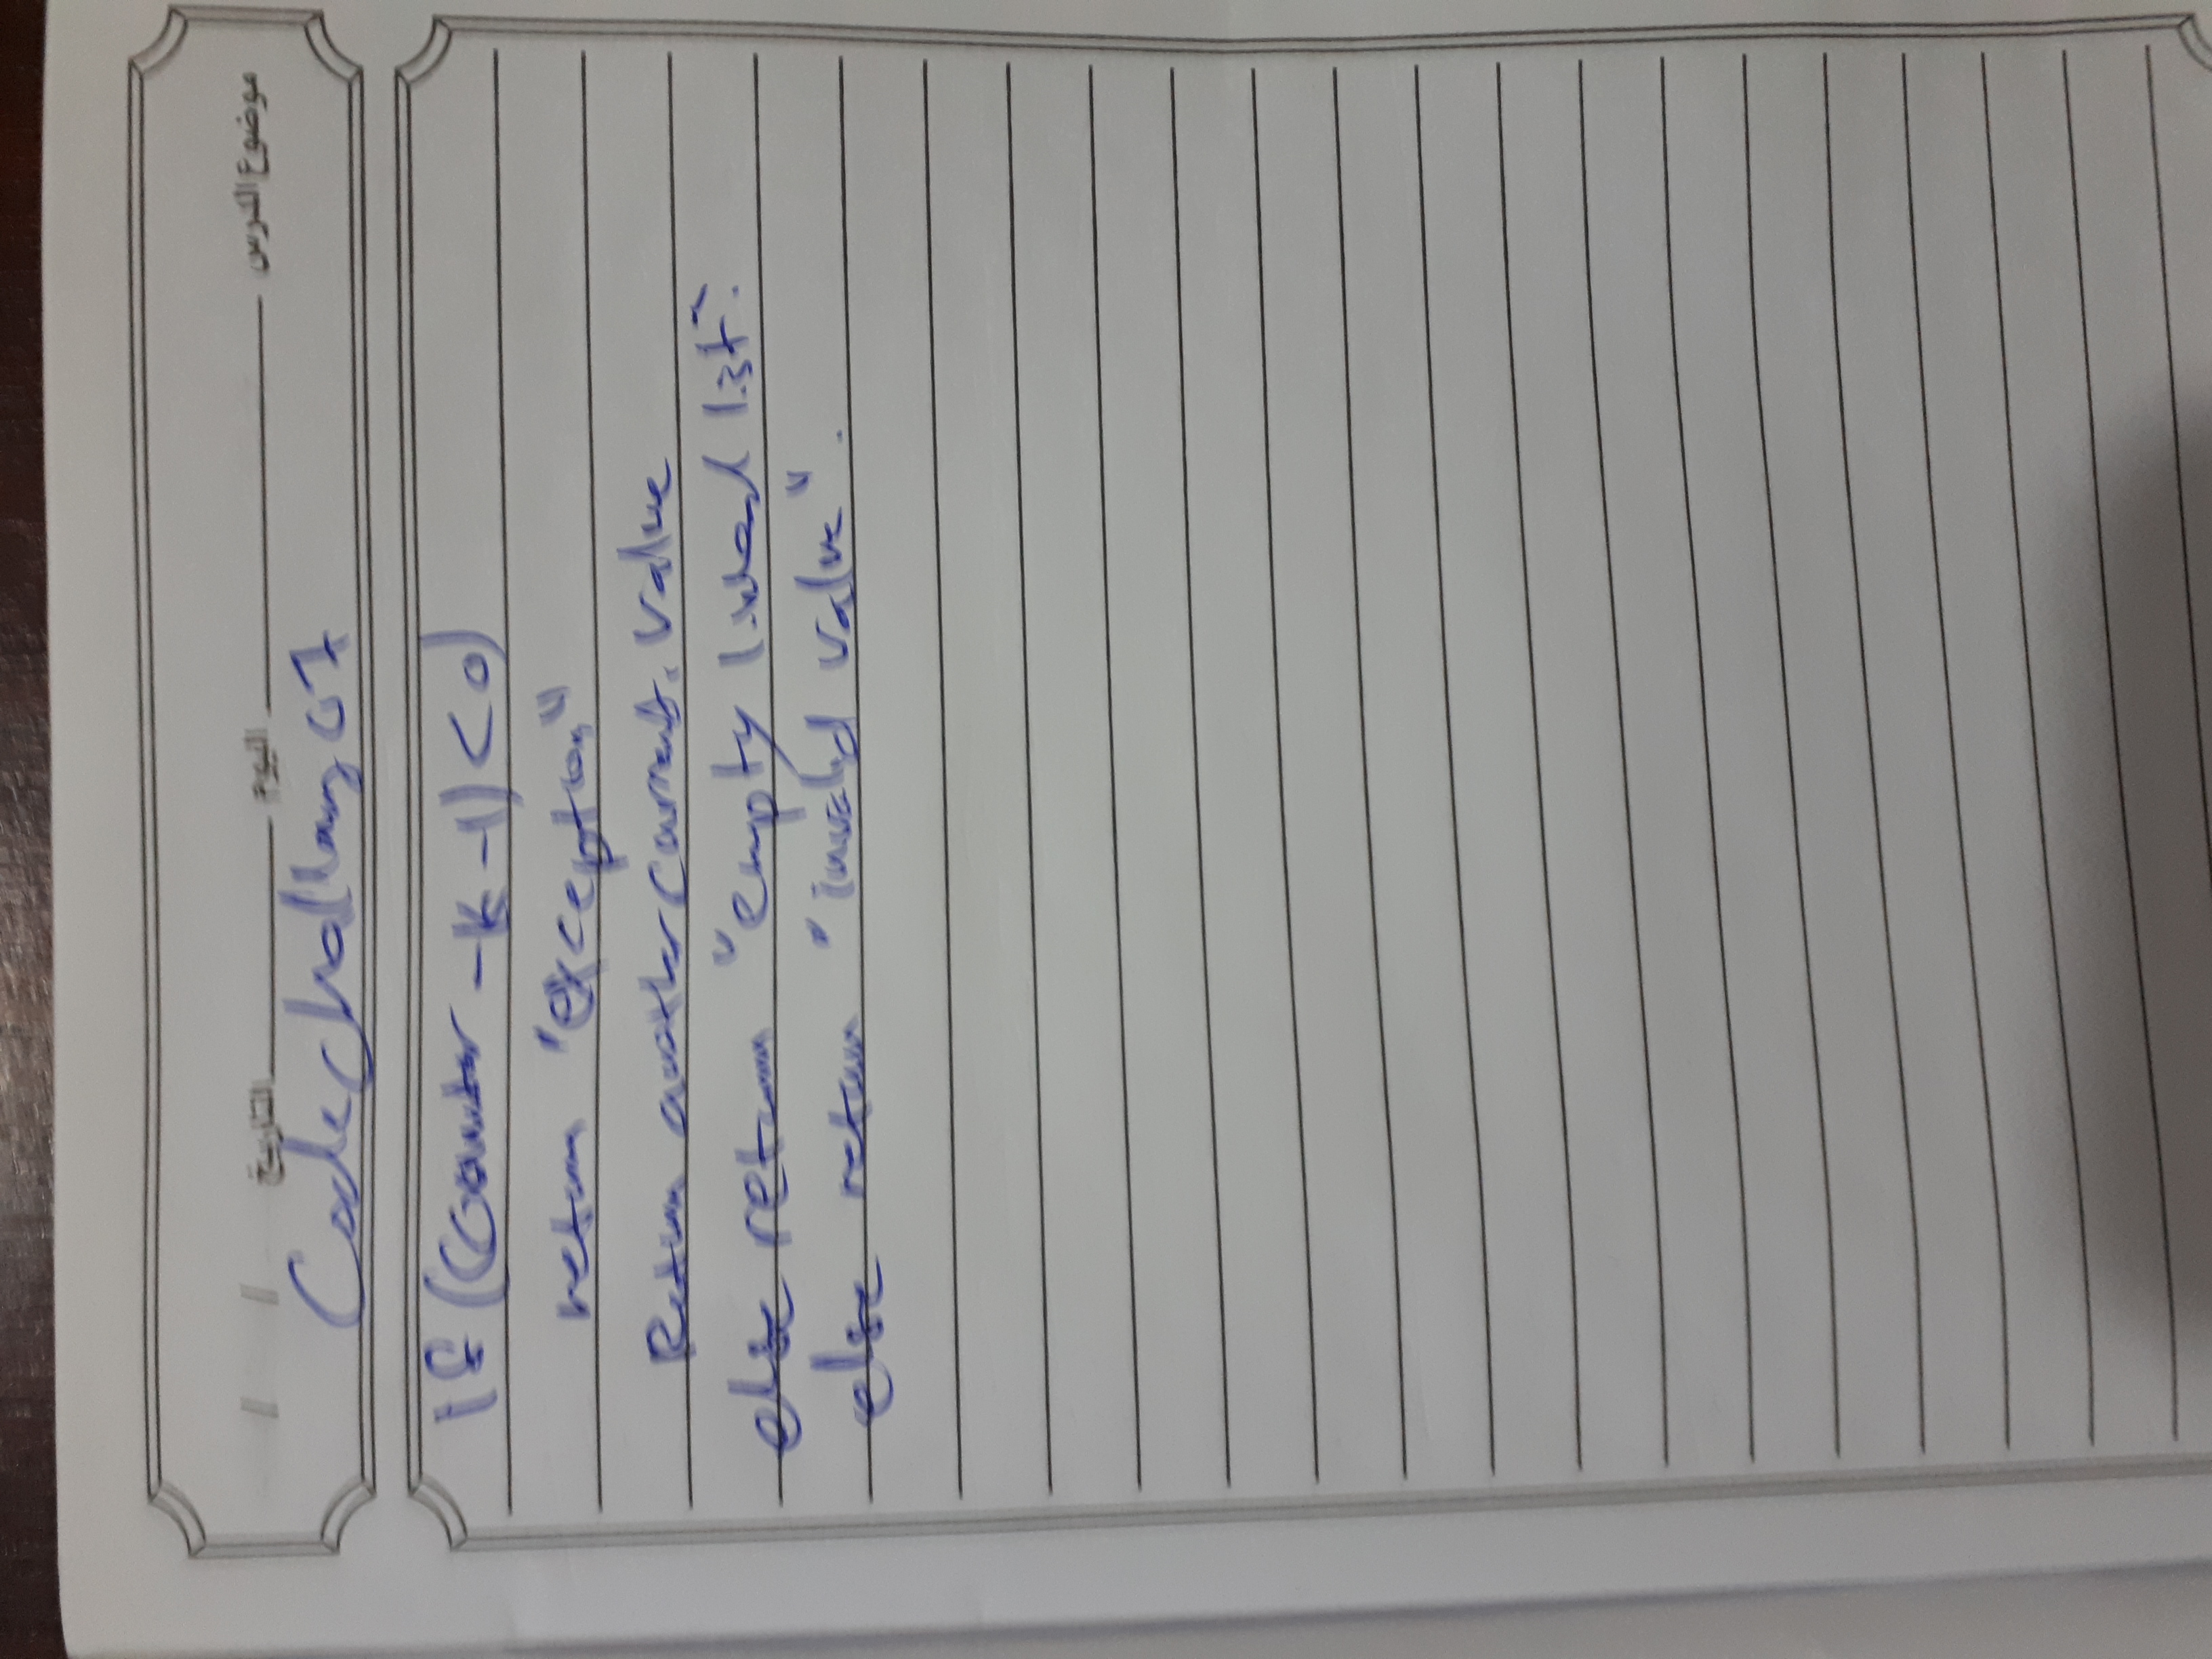 موضوع الدرس اليوم التاريخ / /
Code challeng 07
if ((counter - k - 1) < 0)
return "exception"
Return another current. value
else return "empty linked list".
else return "invalid value".